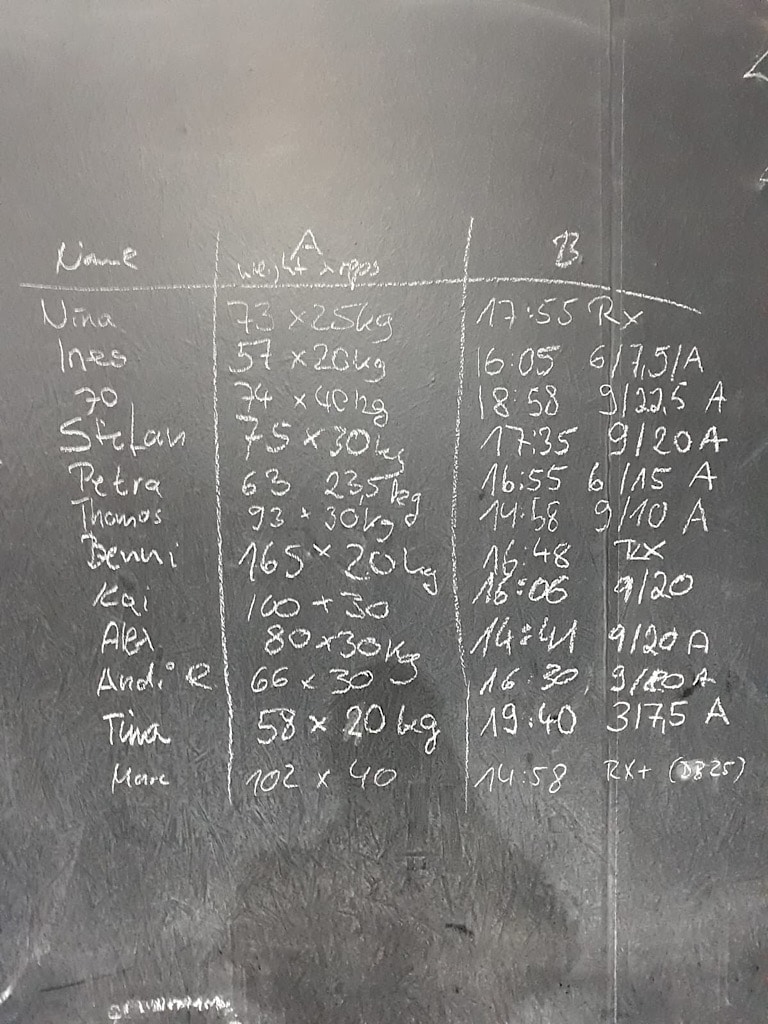 Name A B
weight x reps
Nina 73 x 25kg 17:55 Rx
Ines 57 x 20kg 16:05 6/7,5/A
Jo 74 x 40kg 18:58 9/22,5 A
Stefan 75 x 30kg 17:35 9/20 A
Petra 63 23,5kg 16:55 6/15 A
Thomas 93 x 30kg 14:58 9/10 A
Benni 165 x 20kg 16:48 RX
Kai 100 + 30 16:06 9/20
Alex 80 x 30kg 14:41 9/20 A
Andi R 66 x 30 16:30 A
Tina 58 x 20kg 19:40 3/7,5 A
Marc 102 x 40 14:58 RX+ (DB25)